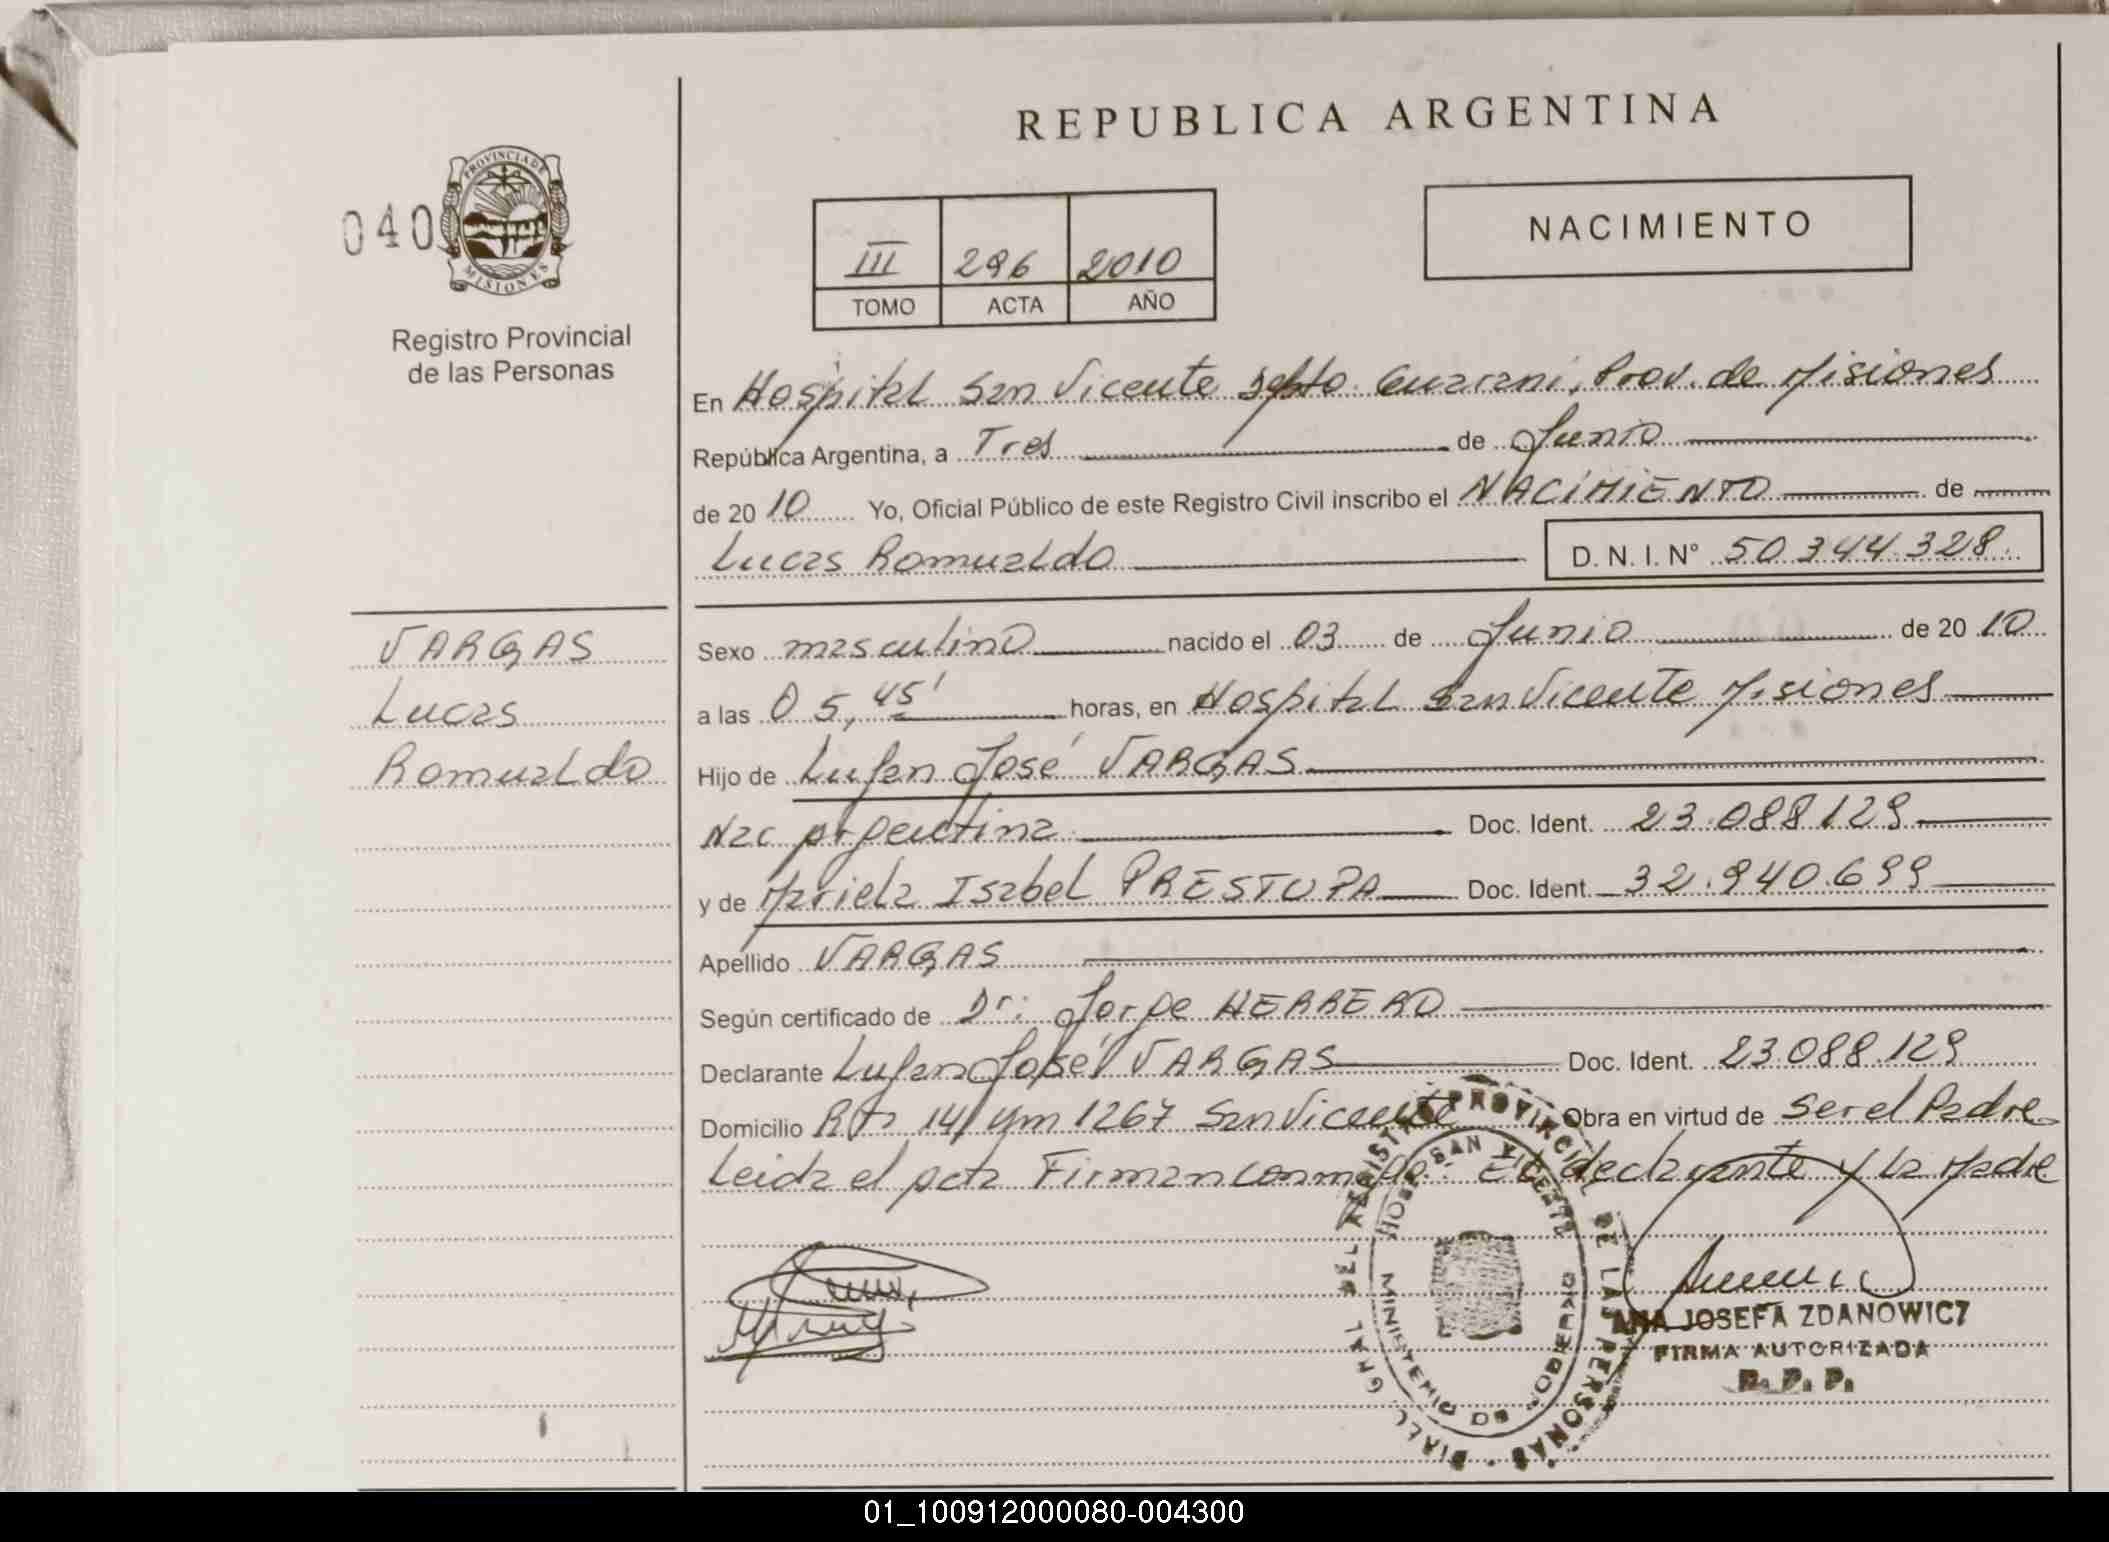 REPUBLICA ARGENTINA
040
PROVINCIA DE
MISIONES
Registro Provincial
de las Personas
III 296 2010
TOMO ACTA AÑO
NACIMIENTO
En Hospital San Vicente Depto. Guaraní, Prov. de Misiones
República Argentina, a Tres de Junio
de 2010 Yo, Oficial Público de este Registro Civil inscribo el NACIMIENTO de
Lucas Romualdo D. N. I. N° 50.344.328.
VARGAS
Lucas
Romualdo
Sexo masculino nacido el 03 de Junio de 2010
a las 05,45' horas, en Hospital San Vicente Misiones
Hijo de Lujan José VARGAS
Nac Argentina Doc. Ident. 23.088.129
y de Mariela Isabel PRESTUPA Doc. Ident. 32.940.699
Apellido VARGAS
Según certificado de Dr: Jorge HERRERO
Declarante Lujan José VARGAS Doc. Ident. 23.088.129
Domicilio Rta 14 Km 1267 San Vicente Obra en virtud de ser el Padre
Leida el acta Firman conmigo: El declarante y la Madre
DEL REGISTRO PROVINCIAL DE LAS PERSONAS
HOSP. SAN VICENTE
MINISTERIO DE GOBIERNO
ANA JOSEFA ZDANOWICZ
FIRMA AUTORIZADA
R. P. P.
01_100912000080-004300